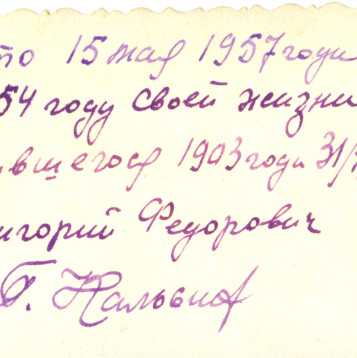 то 15 мая 1957 года
54 году своей жизни
вшегося 1903 года 31/
игорий Федорович
Г.